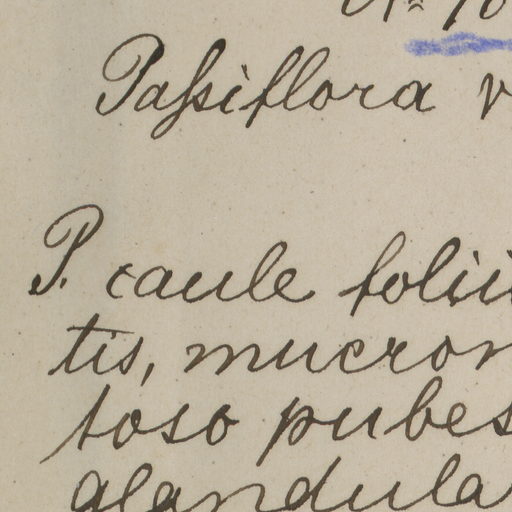 Paſsiflora v
P. caule folii
tis, mucron
toso pubes
glandula